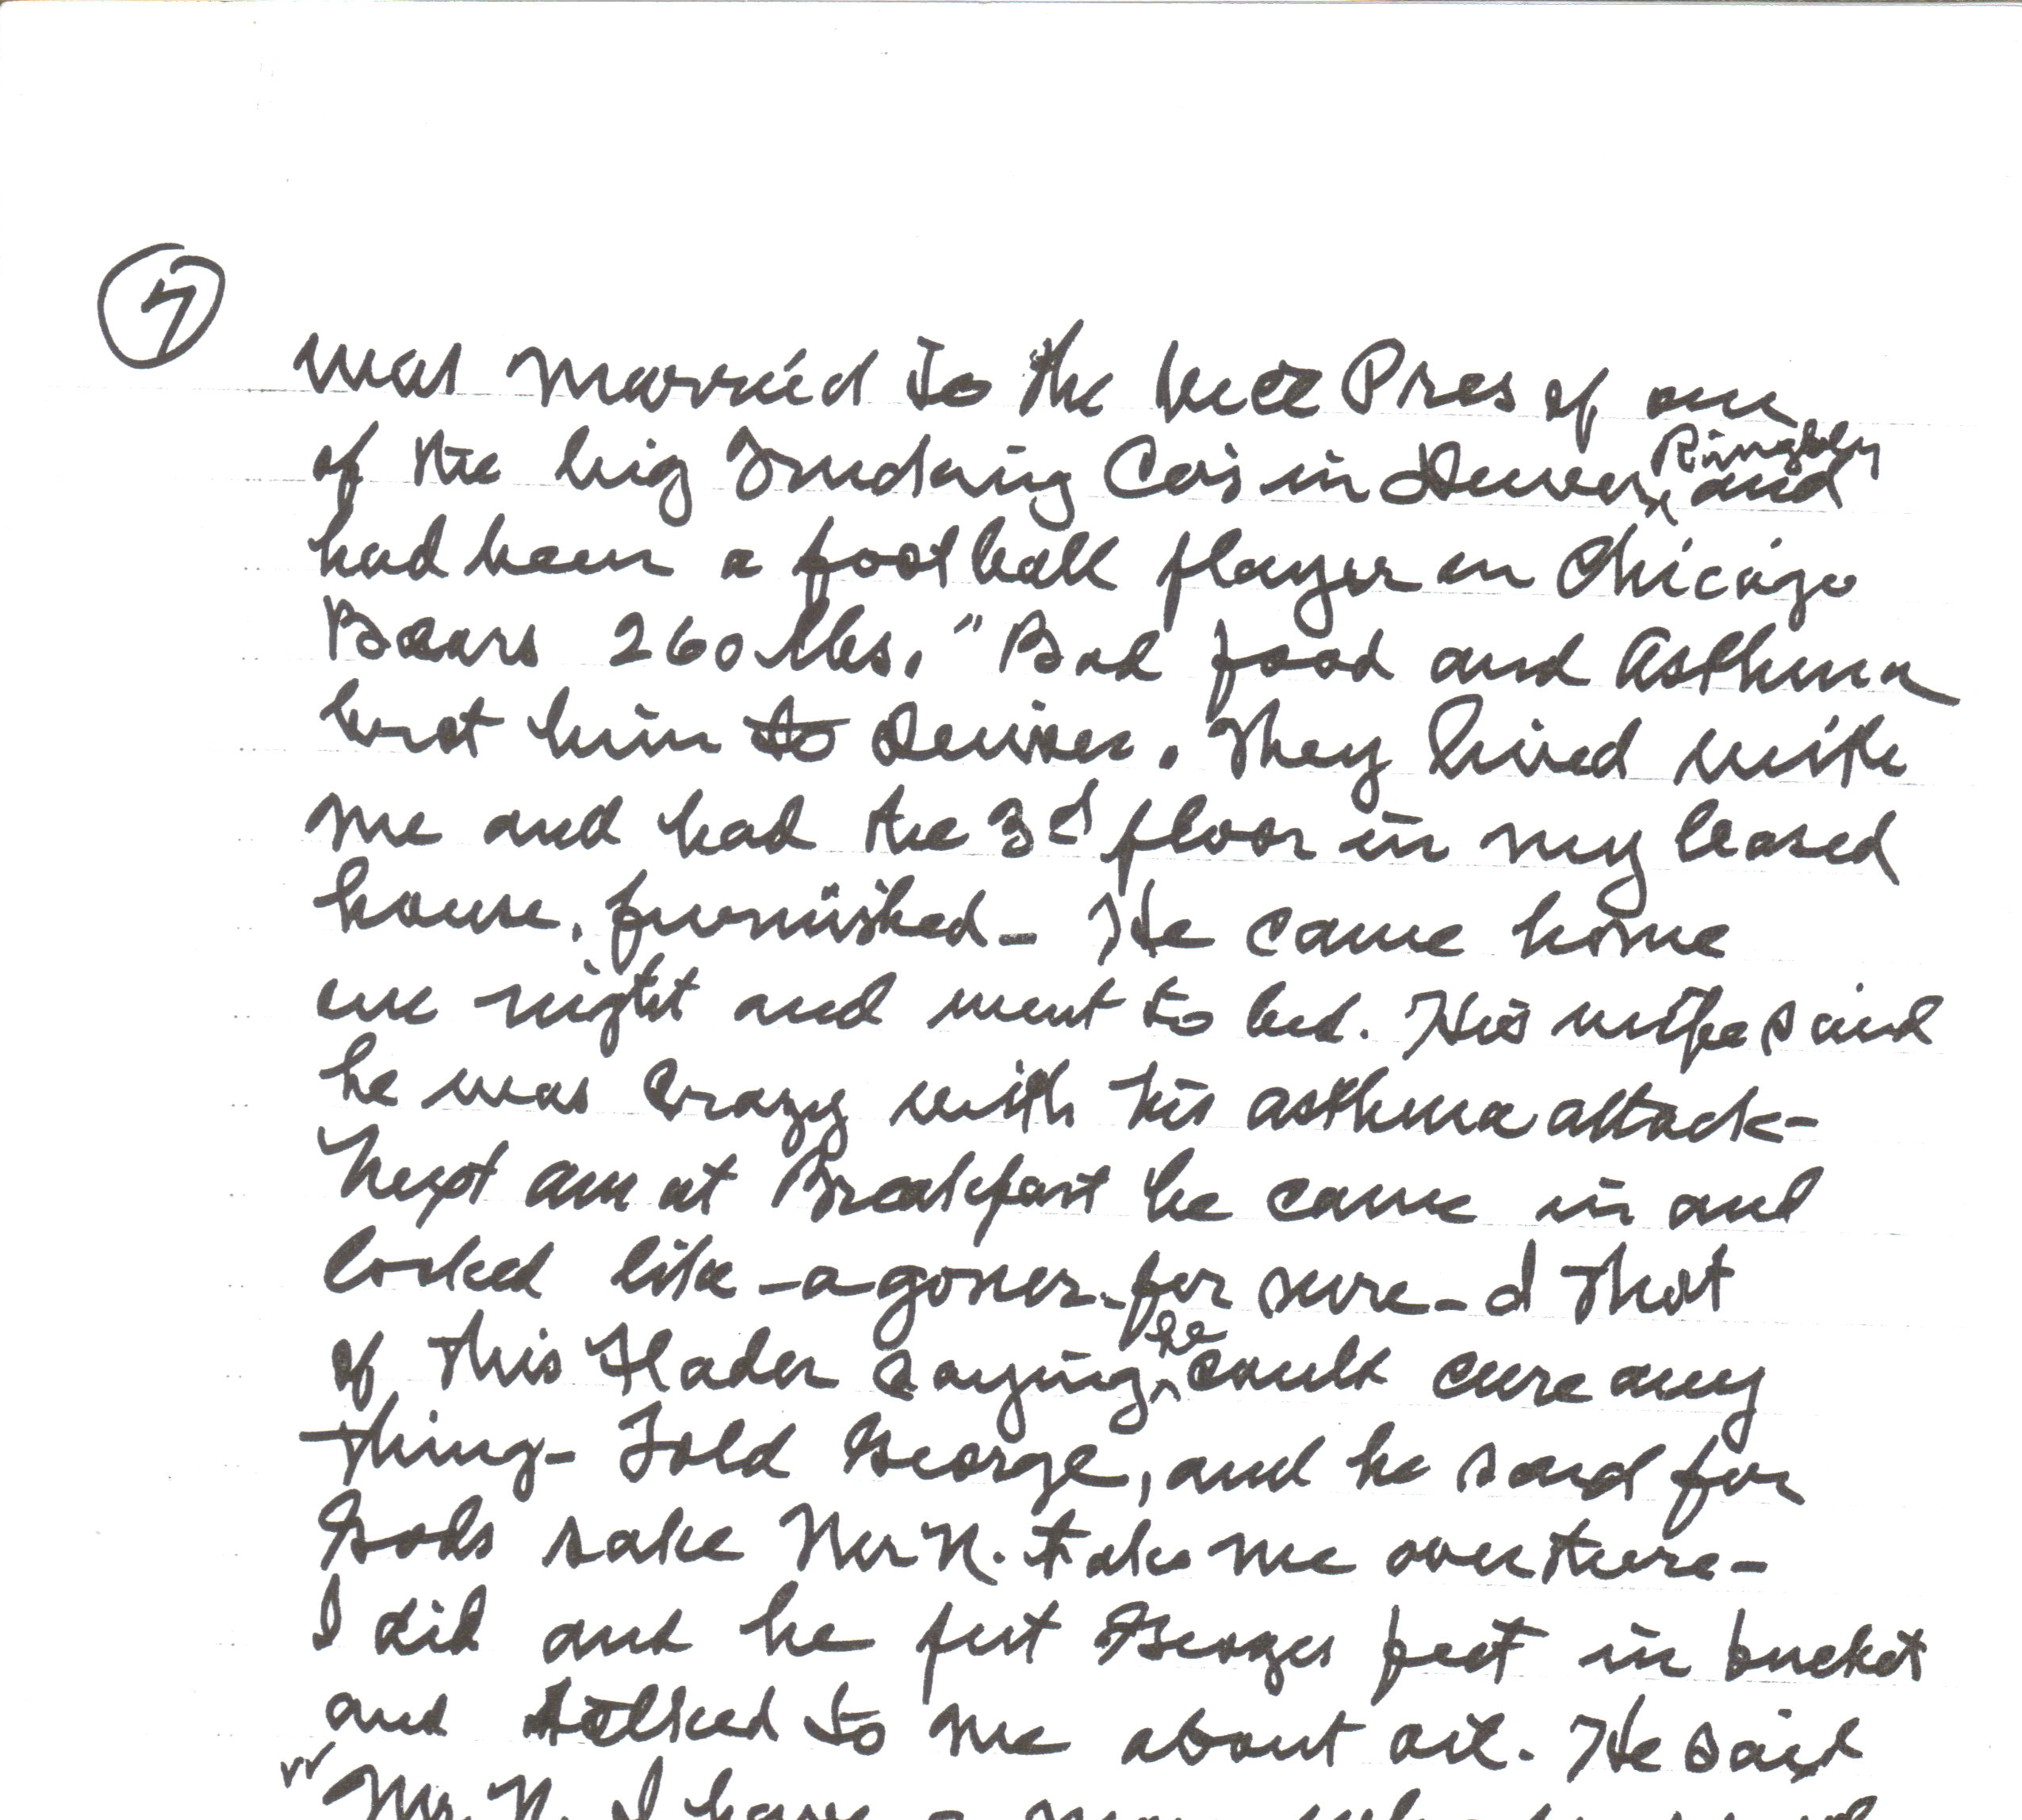 7
was married to the vice Pres of one
of the big Trucking Co's in Denver, Ringsby and
had been a football player on Chicago
Bears 260 lbs. " Bad food and Asthma
brot him to Denver. They lived with
me and had the 3d floor in my leased
house, furnished - He came home
one night and went to bed. His wife said
he was crazy with his asthma attack -
Next am at Breakfast he came in and
looked like - a goner - for sure - I thot
of this Hader saying he could cure any
thing - Told George, and he said for
Gods sake Mr N. take me over there -
I did and he put Georges feet in bucket
and talked to me about oil. He said
"Mr. N. I have a man who